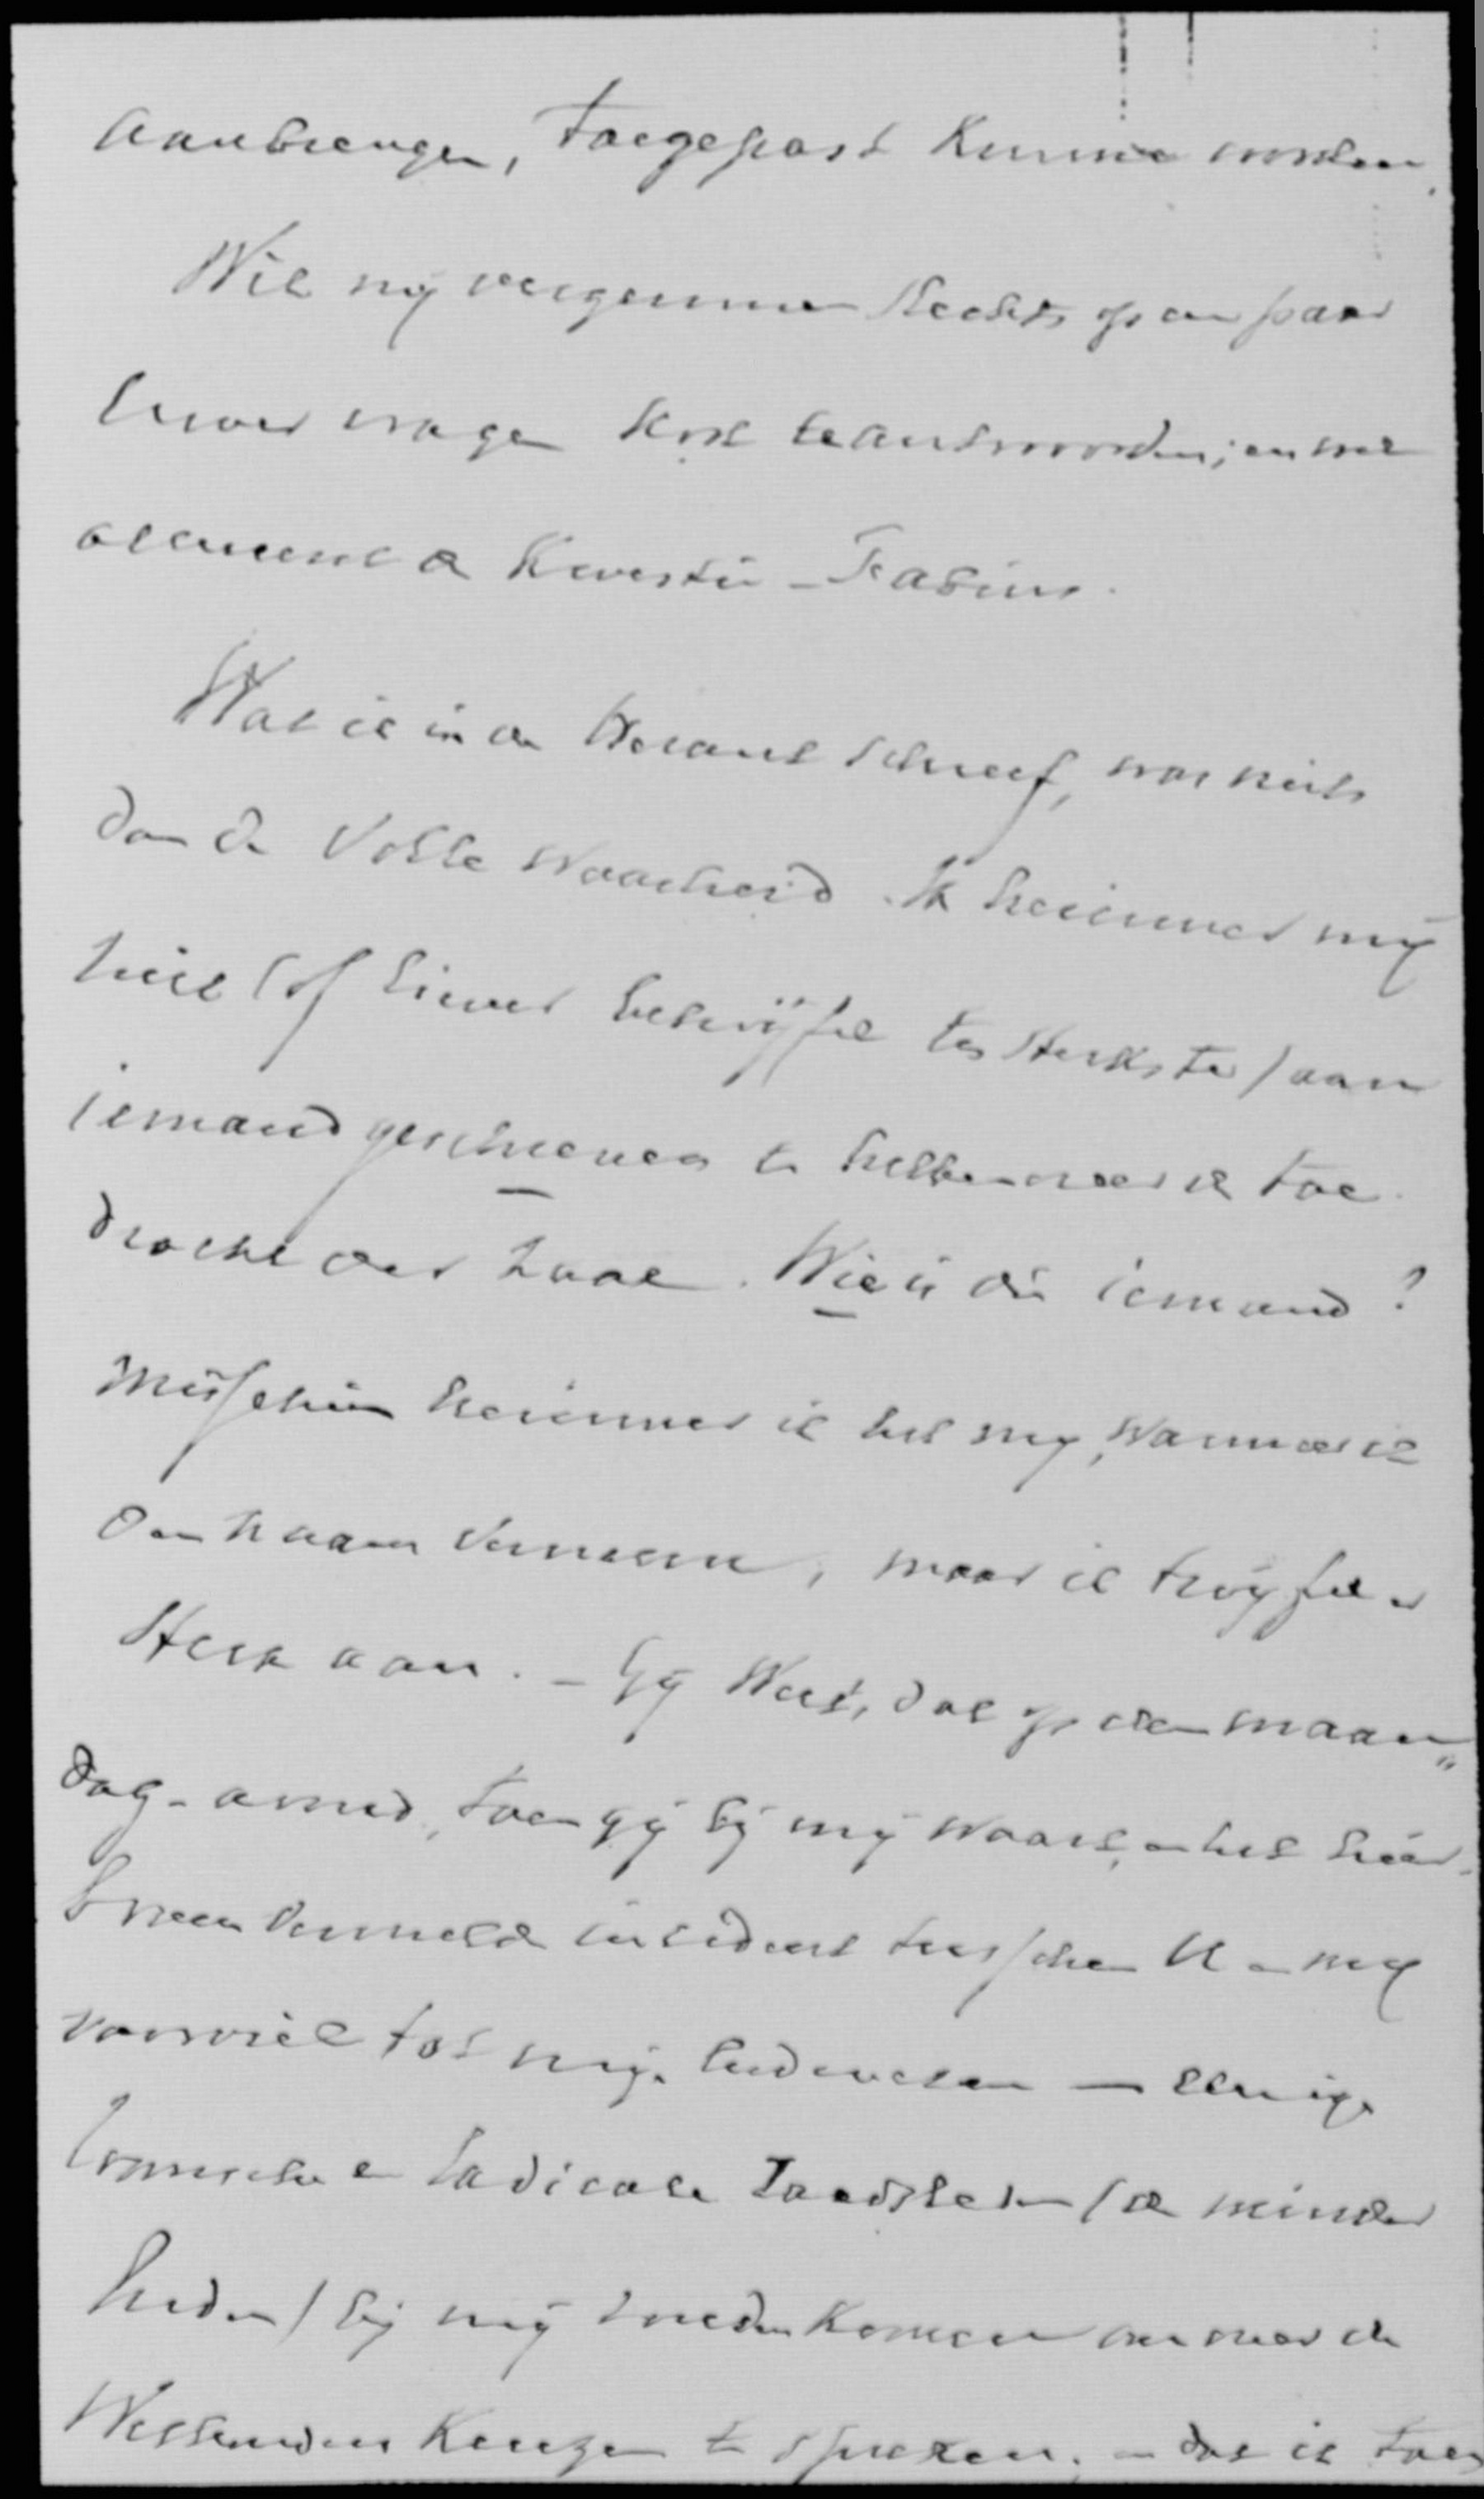 aanbrengen, toegepast kunnen worden.
Wil mij vergunnen slechts op een paar
Uwer vragen kort te antwoorden; en wel
allereerst de Kwestie - Fabius.
Wat ik in de Courant schreef, was niets
dan de volle waarheid. Ik herinner mij
niet (of liever betwijfel ten sterkste) aan
iemand geschreven te hebben over de toe
dracht der zaak. Wie is die iemand?
Misschien herinner ik het mij, wanneer ik
den naam verneem, maar ik twijfel er
sterk aan. - Gij weet, dat op dien maan„
dag-avond, toen gij bij mij waart, en het hier
boven vermelde incident tusschen U en mij
voorviel tot mij. — eenige
Roomsche en Radicale Raadsleden (de minder
heden) bij mij zouden komen om over de
Wethouders Keuze te spreken; - dat ik toen